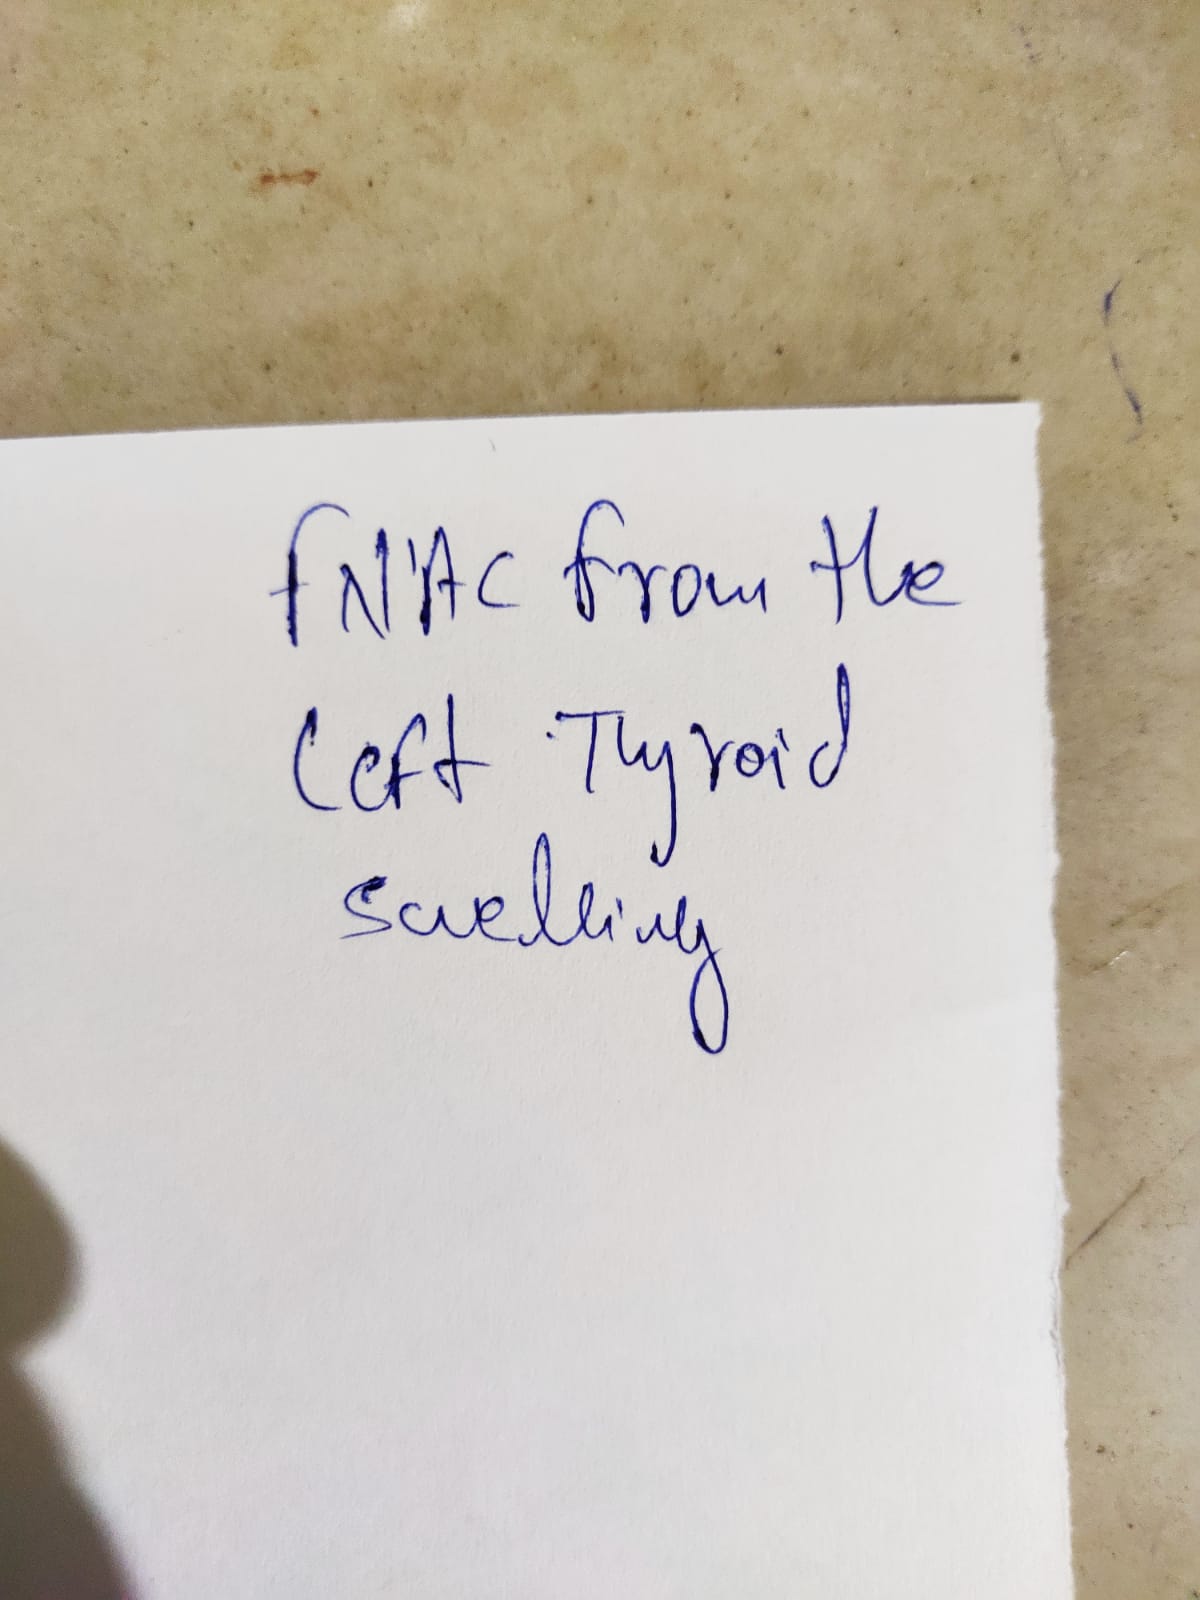 FNAC from the
Left Thyroid
swelling